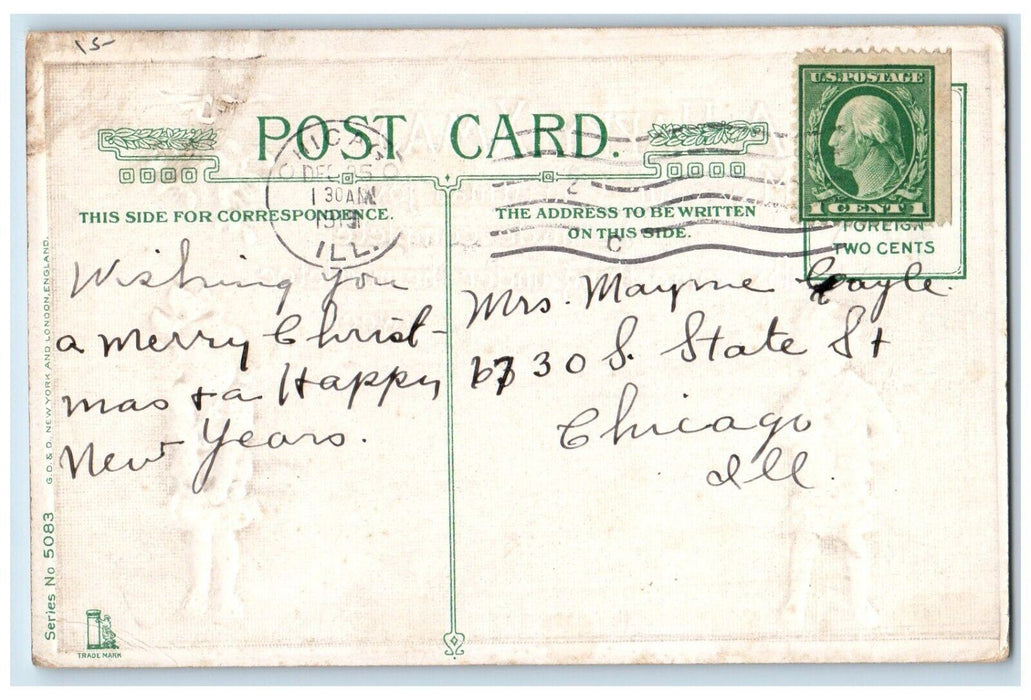 15-
POST CARD.
U.S. POSTAGE
1 CENT 1
CHICAGO
DEC
1 30 AM
ILL.
2
C
FOREIGN
TWO CENTS
THIS SIDE FOR CORRESPONDENCE.
THE ADDRESS TO BE WRITTEN
ON THIS SIDE.
Wishing you
a merry Christ-
mas + a Happy
New Years.
Mrs. Mayme Gayle.
30 S. State St
Chicago
Ill.
G.D. & D. NEW YORK AND LONDON, ENGLAND.
Series No 5083
TRADE MARK